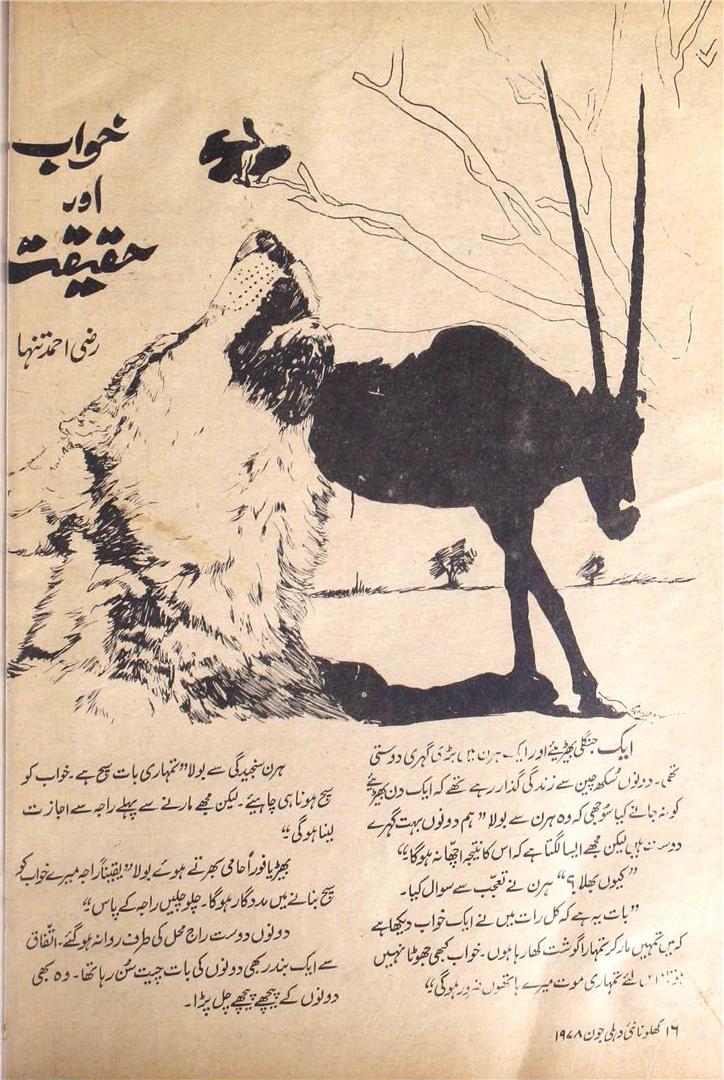 خواب
اور
حقیقت
رضی احمد تنہا
ایک جنگلی بھیڑیئے اور ایک ہرن میں بڑی گہری دوستی
تھی۔ دونوں سُکھ چین سے زندگی گذار رہے تھے کہ ایک دن بھیڑیئے
کو نہ جانے کیا سُوجھی کہ وہ ہرن سے بولا ”ہم دونوں بہت گہرے
دوست ہیں لیکن مجھے ایسا لگتا ہے کہ اس کا نتیجہ اچھّا نہ ہوگا“
”کیوں بھلا؟“ ہرن نے تعجّب سے سوال کیا۔
”بات یہ ہے کہ کل رات میں نے ایک خواب دیکھا ہے
کہ میں تمہیں مار کر تمہارا گوشت کھا رہا ہوں۔ خواب کبھی جھوٹا نہیں
ہوتا اس لئے تمہاری موت میرے ہاتھوں ضرور ہوگی“
ہرن سنجیدگی سے بولا ”تمہاری بات سیح ہے۔ خواب کو
سیح ہونا ہی چاہیئے۔ لیکن مجھے مارنے سے پہلے راجہ سے اجازت
لینا ہوگی“
بھیڑیا فوراً حامی بھرتے ہوئے بولا ”یقیناً راجہ میرے خواب کو
سیح بنانے میں مددگار ہوگا۔ چلو چلیں راجہ کے پاس“
دونوں دوست راج محل کی طرف روانہ ہوگئے۔ اتّفاق
سے ایک بندر بھی دونوں کی بات چیت سُن رہا تھا۔ وہ بھی
دونوں کے پیچھے پیچھے چل پڑا۔
۱۶ کھلونا نئی دہلی جون ۱۹۷۸